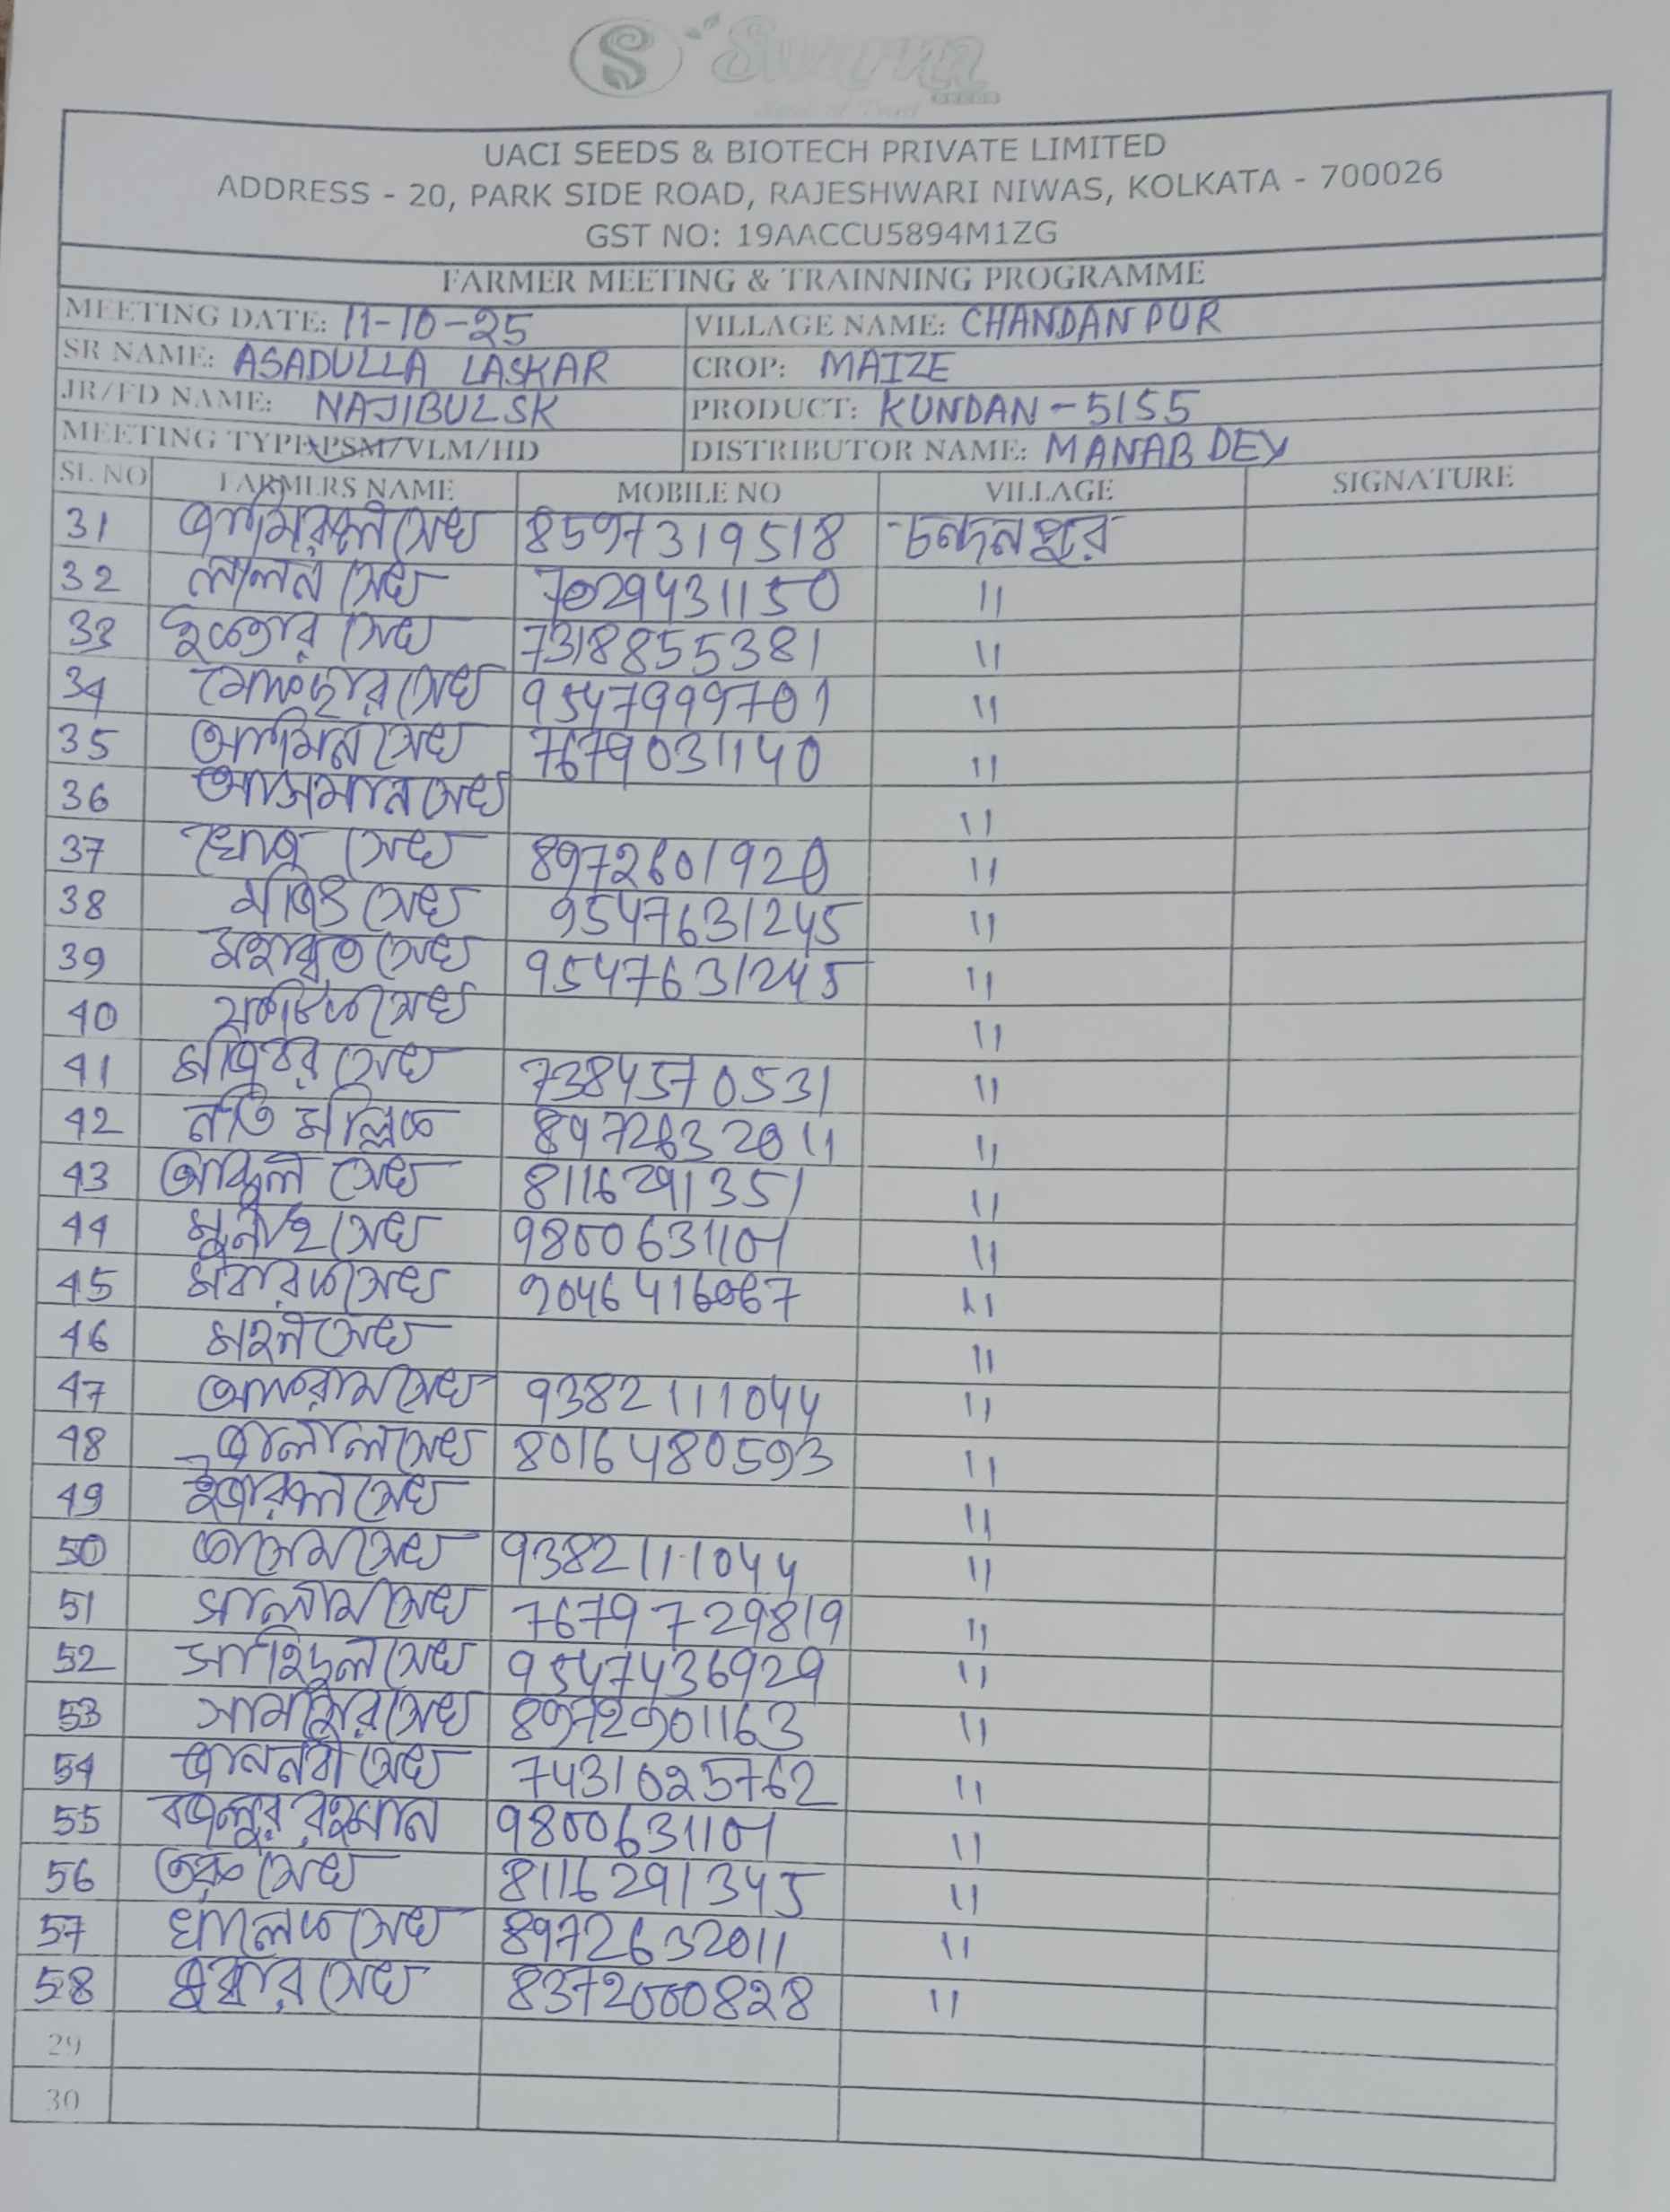 S Swarna
SEEDS
UACI SEEDS & BIOTECH PRIVATE LIMITED
ADDRESS - 20, PARK SIDE ROAD, RAJESHWARI NIWAS, KOLKATA - 700026
GST NO: 19AACCU5894M1ZG
FARMER MEETING & TRAINNING PROGRAMME
MEETING DATE: 11-10-25 VILLAGE NAME: CHANDANPUR
SR NAME: ASADULLA LASKAR CROP: MAIZE
JR/FD NAME: NAJIBUL SK PRODUCT: KUNDAN-5155
MEETING TYPE: PSM/VLM/HD DISTRIBUTOR NAME: MANAB DEY
SL. NO FARMERS NAME MOBILE NO VILLAGE SIGNATURE
31 সেখ 8597319518 চন্দনপুর
32 লালন সেখ 7029431150 11
33 সেখ 7318855381 11
34 সেখ 9547999701 11
35 আলামিন সেখ 7679031140 11
36 আসমান সেখ 11
37 সেখ 8972601920 11
38 সেখ 9547631245 11
39 মহাব্বত সেখ 9547631245 11
40 সেখ 11
41 মজিবর সেখ 7384570531 11
42 মল্লিক 8972632011 11
43 সেখ 8116291351 11
44 সেখ 9800631101 11
45 মবারক সেখ 11
46 সেখ 11
47 আকরাম সেখ 9382111044 11
48 জালাল সেখ 8016480593 11
49 সেখ 11
50 কাসেম সেখ 9382111044 11
51 সালাম সেখ 7679729819 11
52 সাহিদুল সেখ 9547436929 11
53 সেখ 8972901163 11
54 জাননবী সেখ 7431025762 11
55 বজলুর রহমান 9800631101 11
56 সেখ 8116291345 11
57 খালেক সেখ 8972632011 11
58 সেখ 8372000828 11
29
30